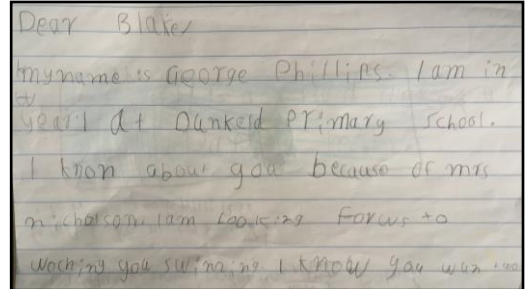 Dear Blake
my name is George Phillips. I am in
year 1 at Dunkeld Primary School.
I know about you because of mrs
nicholson. I am looking forws to
woching you swimming. I know you wun two